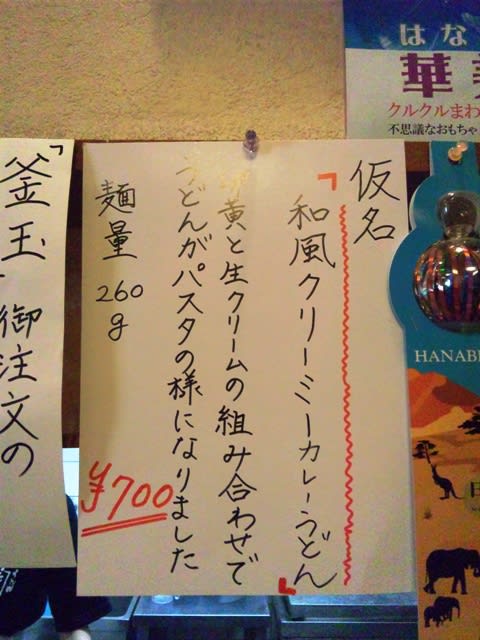 仮名
「和風クリーミーカレーうどん」
卵黄と生クリームの組み合わせで
うどんがパスタの様になりました
麺量 260g
¥700
「釜玉・御注文の
はな
華
クルクルまわ
不思議なおもちゃ
HANABI